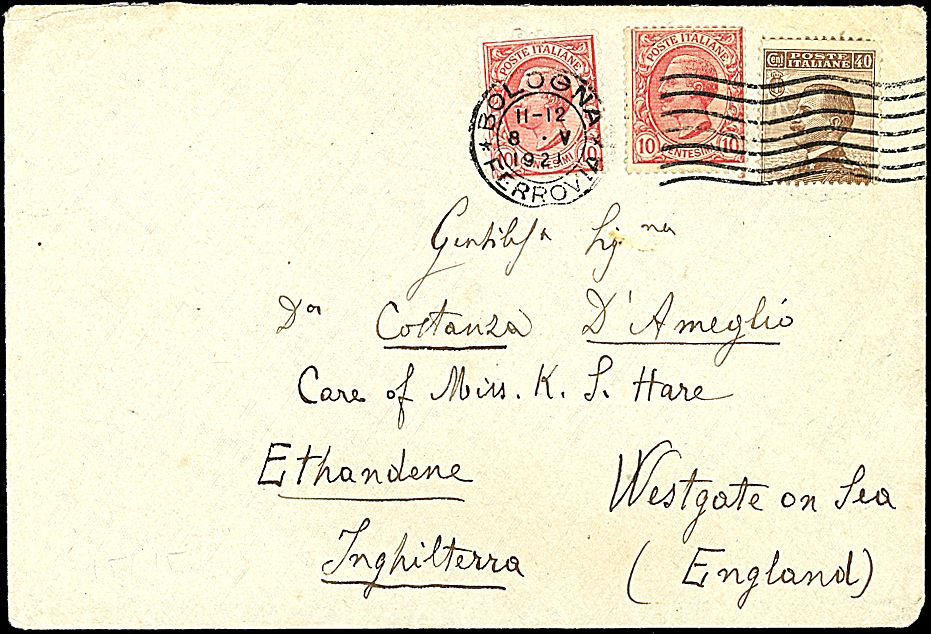 POSTE ITALIANE
POSTE ITALIANE
10 CENTESIMI 10
Cent POSTE ITALIANE 40
BOLOGNA
11-12
8 · V
192
* FERROVIA *
Sig.na
Da
Costanza D'Ameglio
Care of Miss. K. S. Hare
Ethandene Westgate on Sea
Inghilterra (England)